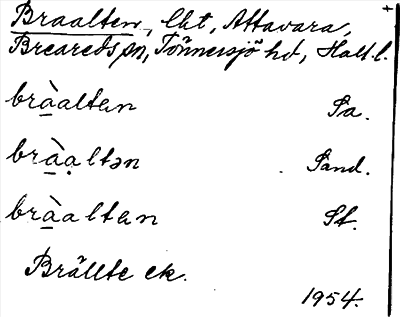 Braalten, lht, Attavara,
Breareds sn, Tönnersjö hd, Hall. l.
brà̱altən Sa.
brà̱ạltən Sand.
brà̱altən St.
Brällte ek.
1954.